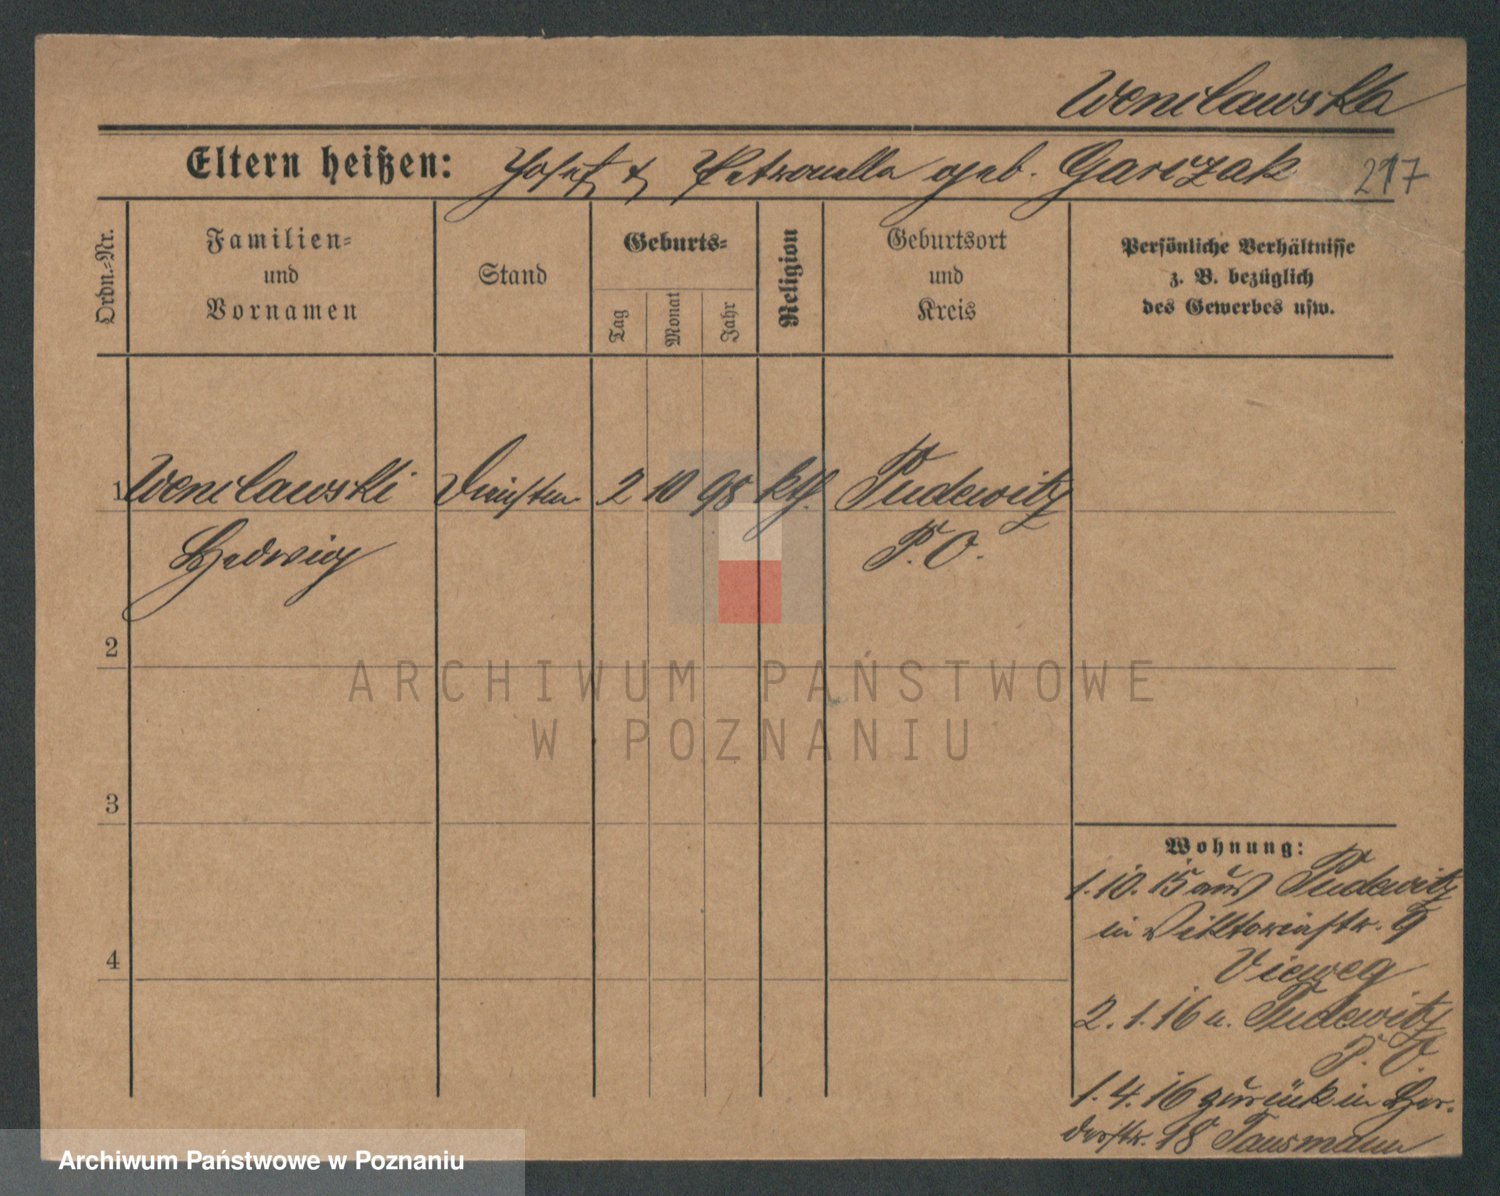 Wencławska
Eltern heißen: Josef & Petronella geb. Garczak 217
Ordn.-Nr.
Familien-
und
Vornamen
Stand
Geburts-
Tag
Monat
Jahr
Religion
Geburtsort
und
Kreis
Persönliche Verhältnisse
z. B. bezüglich
des Gewerbes usw.
1 Wencławski 2 10 98 kth. Pudewitz
Hedwig P. O.
2
3
4
Wohnung:
1. 10. 15 aus Pudewitz
in Viktoriastr. 9
Vieweg
2. 1. 16 n. Pudewitz
P. O.
1. 4. 16 zurück in Her-
derstr. 18
ARCHIWUM PAŃSTWOWE
W POZNANIU
Archiwum Państwowe w Poznaniu